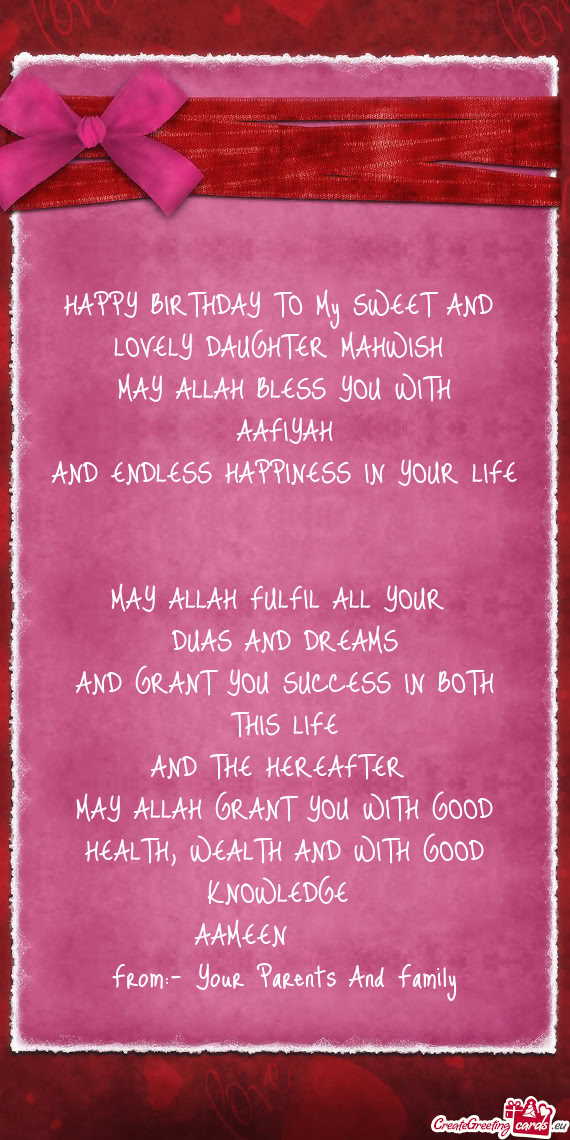 love
love
HAPPY BIRTHDAY TO My SWEET AND
LOVELY DAUGHTER MAHWISH
MAY ALLAH BLESS YOU WITH
AAFIYAH
AND ENDLESS HAPPINESS IN YOUR LIFE
MAY ALLAH FULFIL ALL YOUR
DUAS AND DREAMS
AND GRANT YOU SUCCESS IN BOTH
THIS LIFE
AND THE HEREAFTER
MAY ALLAH GRANT YOU WITH GOOD
HEALTH, WEALTH AND WITH GOOD
KNOWLEDGE
AAMEEN
from:- Your Parents And Family
love
CreateGreetingcards.eu